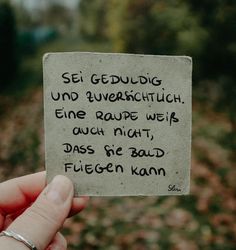 SEi GEDULDiG
UND ZUVERSiCHTLiCH.
EiNE RAUPE WEiß
AUCH NiCHT,
DASS SiE BALD
FLiEGEN KANN